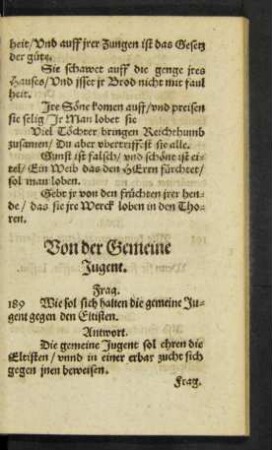 heit/ Vnd auff jrer Zungen ist das Gesetz
der güte.
Sie schawet auff die genge jres
Hauses/ Vnd jsset jr Brod nicht mit faul
heit.
Jre Söne komen auff/ vnd preisen
sie selig/ Jr Man lobet sie
Viel Töchter bringen Reichthumb
zusamen/ Du aber vbertriffst sie alle.
Gunst ist falsch/ vnd schöne ist ei-
tel/ Ein Weib das den HErrn fürchtet/
sol man loben.
Gebt jr von den früchten jrer hen-
de/ das sie jre Werck loben in den Tho-
ren.
Von der Gemeine
Jugent.
Frag.
189 Wie sol sich halten die gemeine Ju-
gent gegen den Eltisten.
Antwort.
Die gemeine Jugent sol ehren die
Eltisten/ vnnd in einer erbar zucht sich
gegen jnen beweisen.
Frag.